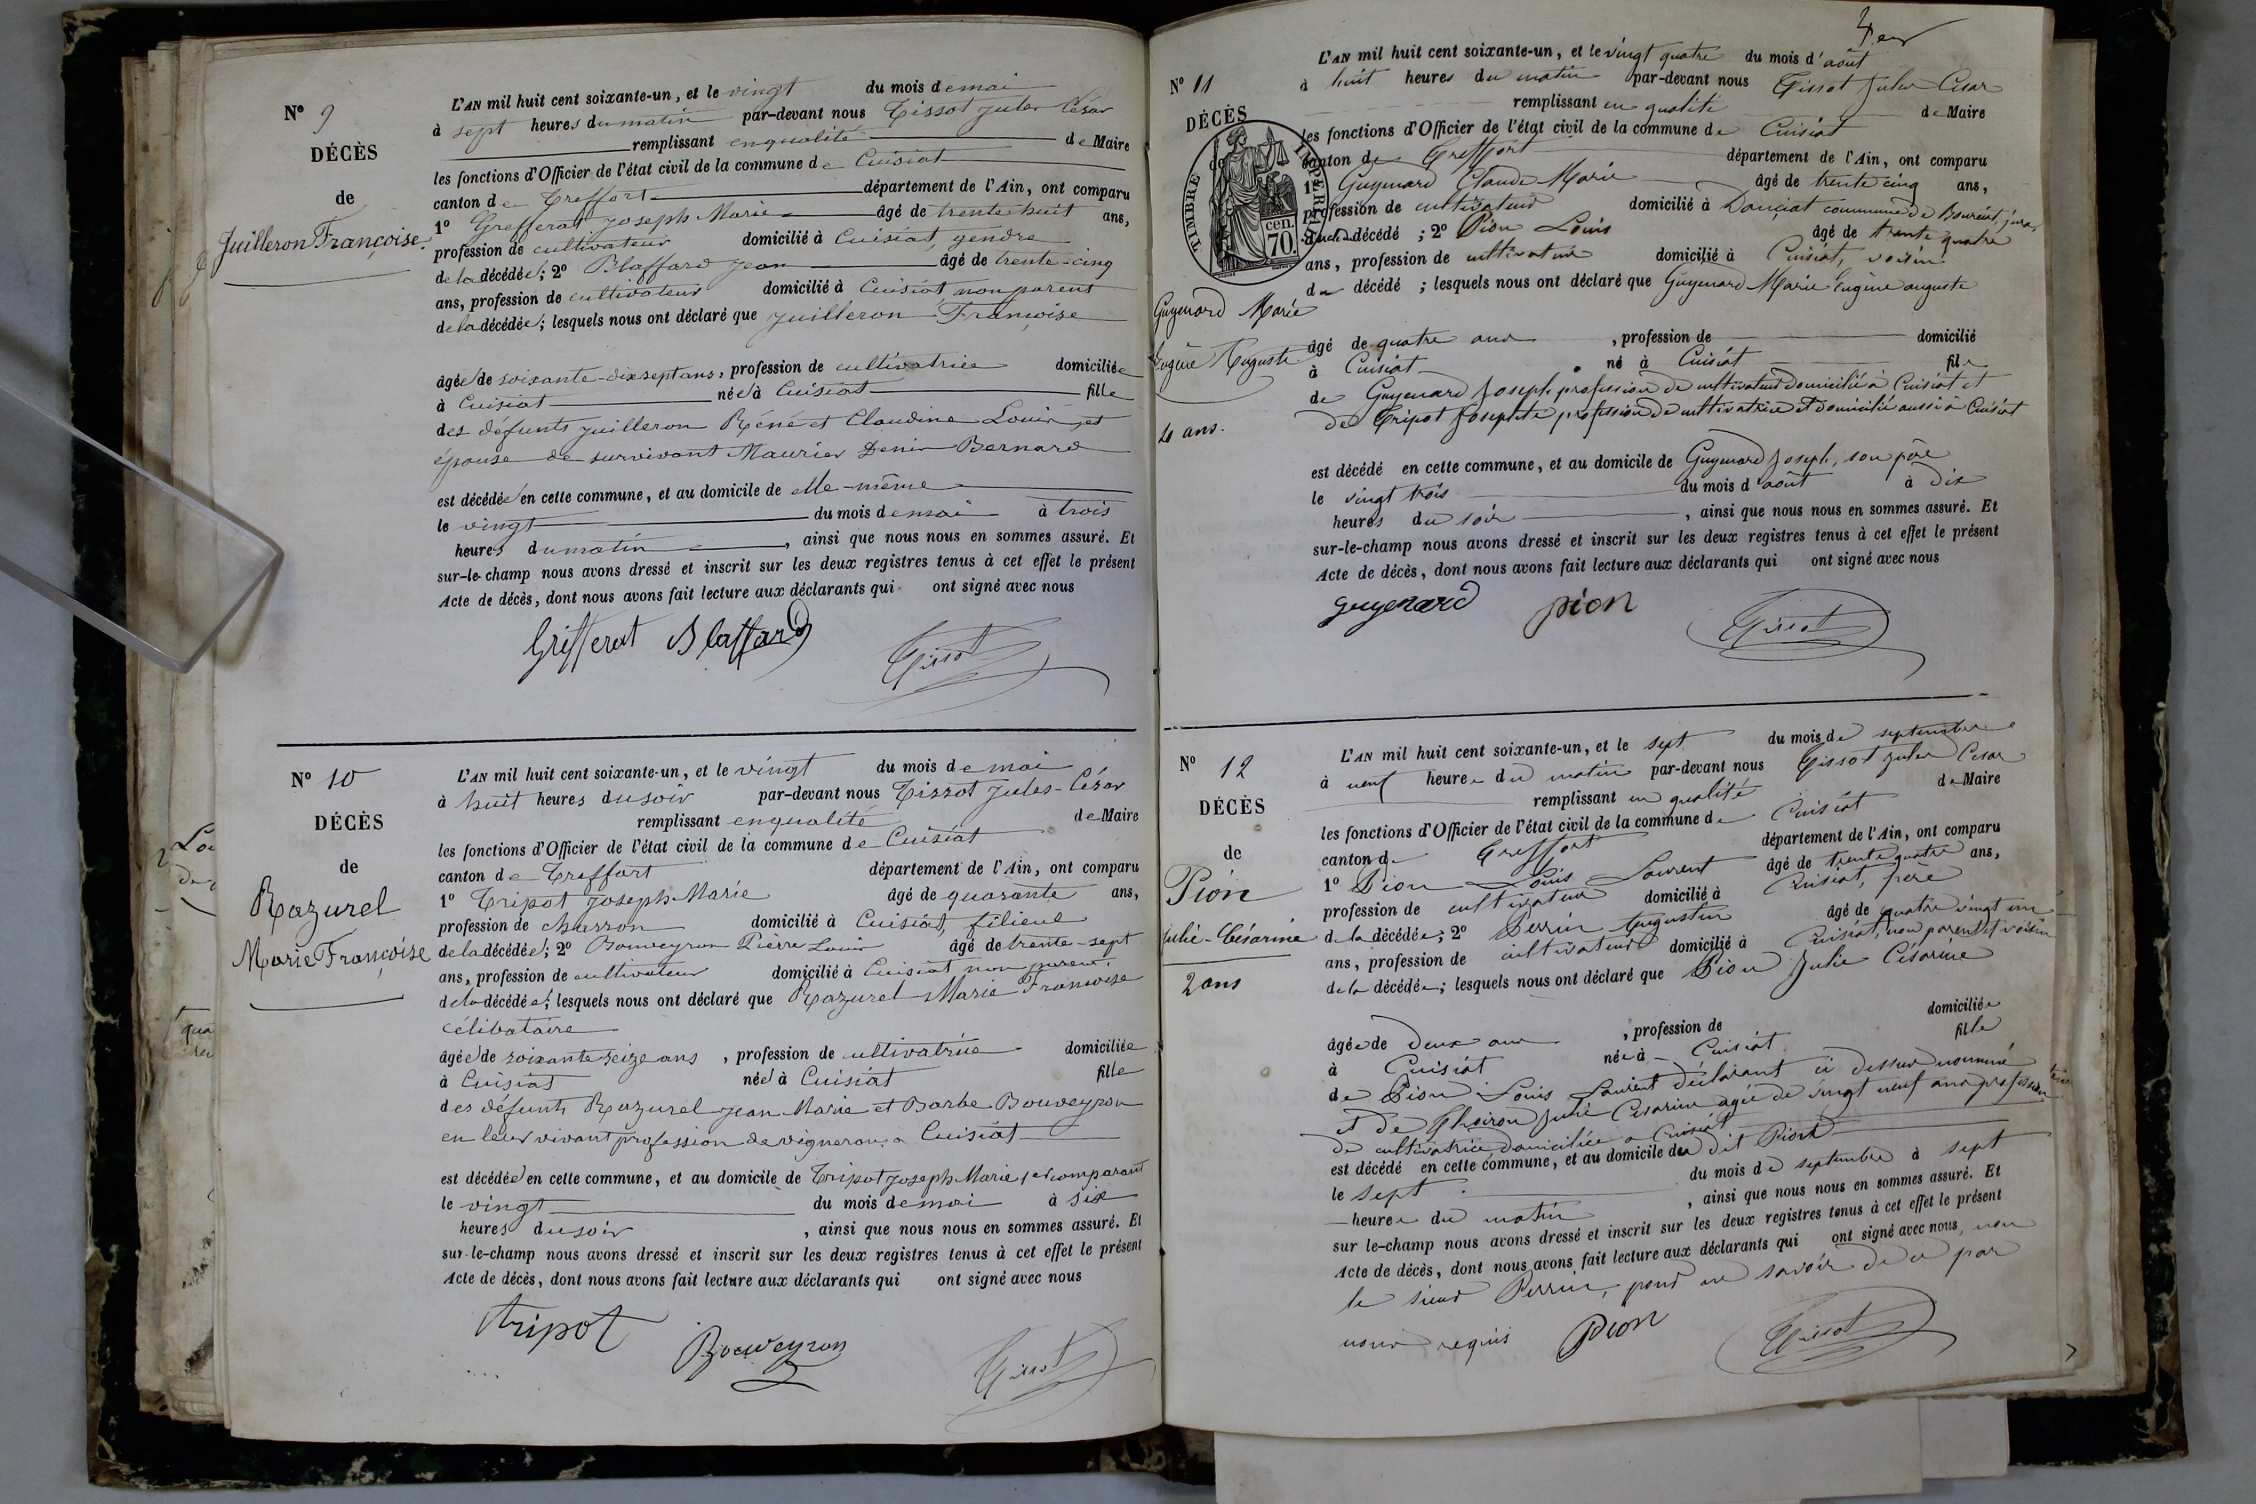 N° 9
DÉCÈS
de
Juilleron Françoise.
L'AN mil huit cent soixante-un, et le vingt du mois de mai
à sept heures du matin par-devant nous Tissot Jules César
remplissant en qualité de Maire
les fonctions d'Officier de l'état civil de la commune de Cuisiat
canton de Treffort département de l'Ain, ont comparu
1° Grefferat Joseph Marie âgé de trente huit ans,
profession de cultivateur domicilié à Cuisiat, gendre
de la décédée; 2° Blaffard Jean âgé de trente-cinq
ans, profession de cultivateur domicilié à Cuisiat non parent
de la décédée; lesquels nous ont déclaré que Juilleron Françoise
âgée de soixante-dix sept ans, profession de cultivatrice domiciliée
à Cuisiat née à Cuisiat fille
des défunts Juilleron Réné et Claudine Louis et
épouse de survivant Maurier Denis Bernard
est décédée en cette commune, et au domicile de elle-même
le vingt du mois de mai à trois
heures du matin, ainsi que nous nous en sommes assuré. Et
sur-le-champ nous avons dressé et inscrit sur les deux registres tenus à cet effet le présent
Acte de décès, dont nous avons fait lecture aux déclarants qui ont signé avec nous
Grifferat Blaffard Tissot
N° 10
DÉCÈS
de
Razurel
Marie Françoise
L'AN mil huit cent soixante-un, et le vingt du mois de mai
à huit heures du soir par-devant nous Tissot Jules-César
remplissant en qualité de Maire
les fonctions d'Officier de l'état civil de la commune de Cuisiat
canton de Treffort département de l'Ain, ont comparu
1° Tripot Joseph Marie âgé de quarante ans,
profession de charron domicilié à Cuisiat, filieul
de la décédée; 2° Bouveyron Pierre Louis âgé de trente-sept
ans, profession de cultivateur domicilié à Cuisiat non parent
de la décédée; lesquels nous ont déclaré que Razurel Marie Françoise
célibataire
âgée de soixante seize ans, profession de cultivatrice domiciliée
à Cuisiat née à Cuisiat fille
des défunts Razurel Jean Marie et Barbe Bouveyron
en leur vivant profession de vignerons à Cuisiat
est décédée en cette commune, et au domicile de Tripot Joseph Marie, 1er comparant
le vingt du mois de mai à six
heures du soir, ainsi que nous nous en sommes assuré. Et
sur-le-champ nous avons dressé et inscrit sur les deux registres tenus à cet effet le présent
Acte de décès, dont nous avons fait lecture aux déclarants qui ont signé avec nous
tripot Bouveyron Tissot
N° 11
DÉCÈS
de
TIMBRE IMPERIAL
70 cen.
Guyenard Marie
Eugène Auguste
4 ans.
L'AN mil huit cent soixante-un, et le vingt quatre du mois d'août
à huit heures du matin par-devant nous Tissot Jules César
remplissant en qualité de Maire
les fonctions d'Officier de l'état civil de la commune de Cuisiat
canton de Treffort département de l'Ain, ont comparu
1° Guyenard Claude Marie âgé de trente cinq ans,
profession de cultivateur domicilié à commune de
décédé; 2° Pion Louis âgé de trente quatre
ans, profession de cultivateur domicilié à Cuisiat, voisin
du décédé; lesquels nous ont déclaré que Guyenard Marie Eugène auguste
âgé de quatre ans, profession de domicilié
à Cuisiat né à Cuisiat fils
de Guyenard Joseph profession de cultivateur domicilié à Cuisiat et
de Tripot Josephte profession de cultivatrice et domicilié aussi à Cuisiat
est décédé en cette commune, et au domicile de Guyenard Joseph, son père
le vingt trois du mois d'août à dix
heures du soir, ainsi que nous nous en sommes assuré. Et
sur-le-champ nous avons dressé et inscrit sur les deux registres tenus à cet effet le présent
Acte de décès, dont nous avons fait lecture aux déclarants qui ont signé avec nous
guyenard pion Tissot
N° 12
DÉCÈS
de
Pion
Julie-Césarine
2 ans
L'AN mil huit cent soixante-un, et le sept du mois de septembre
à neuf heures du matin par-devant nous Tissot Jules César
remplissant en qualité de Maire
les fonctions d'Officier de l'état civil de la commune de Cuisiat
canton de Treffort département de l'Ain, ont comparu
1° Pion Louis Laurent âgé de trente quatre ans,
profession de cultivateur domicilié à Cuisiat, père
de la décédée; 2° Perrin Augustin âgé de quatre vingt un
ans, profession de cultivateur domicilié à Cuisiat, non parent et voisin
de la décédée; lesquels nous ont déclaré que Pion Julie Césarine
âgée de deux ans, profession de domiciliée
à Cuisiat née à Cuisiat fille
de Pion Louis Laurent déclarant ci dessus nommé
et de Julie Césarine agée de vingt neuf ans profession
de cultivatrice domiciliée à Cuisiat
est décédé en cette commune, et au domicile du dit Pion
le sept du mois de septembre à sept
heures du matin, ainsi que nous nous en sommes assuré. Et
sur le-champ nous avons dressé et inscrit sur les deux registres tenus à cet effet le présent
Acte de décès, dont nous avons fait lecture aux déclarants qui ont signé avec nous, non
le sieur Perrin, pour ne savoir de ce par
nous requis pion Tissot